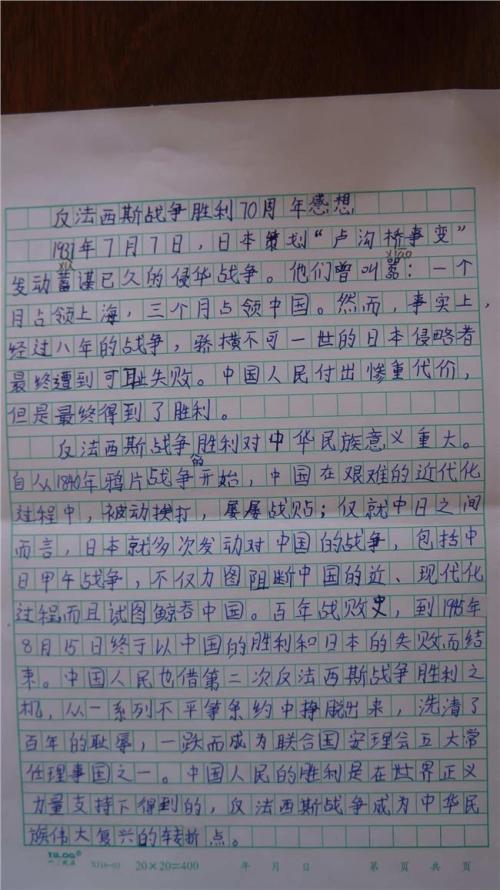 反法西斯战争胜利70周年感想
1937年7月7日，日本策划“卢沟桥事变”
发动蓄谋已久的侵华战争。他们曾叫嚣：一个
XU
xiāo
月占领上海，三个月占领中国。然而，事实上，
经过八年的战争，骄横不可一世的日本侵略者
最终遭到可耻失败。中国人民付出惨重代价，
但是最终得到了胜利。
反法西斯战争胜利对中华民族意义重大。
自从1840年鸦片战争的开始，中国在艰难的近代化
过程中，被动挨打，屡屡战败；仅就中日之间
而言，日本就多次发动对中国的战争，包括中
日甲午战争，不仅力图阻断中国的近、现代化
过程而且试图鲸吞中国。百年战败史，到1945年
8月15日终于以中国的胜利和日本的失败而结
束。中国人民也借第二次反法西斯战争胜利之
机，从一系列不平等条约中挣脱出来，洗清了
百年的耻辱，一跃而成为联合国安理会五大常
任理事国之一。中国人民的胜利是在世界正义
力量支持下得到的，反法西斯战争成为中华民
族伟大复兴的转折点。
20×20=400 年 月 日 第 页 共 页